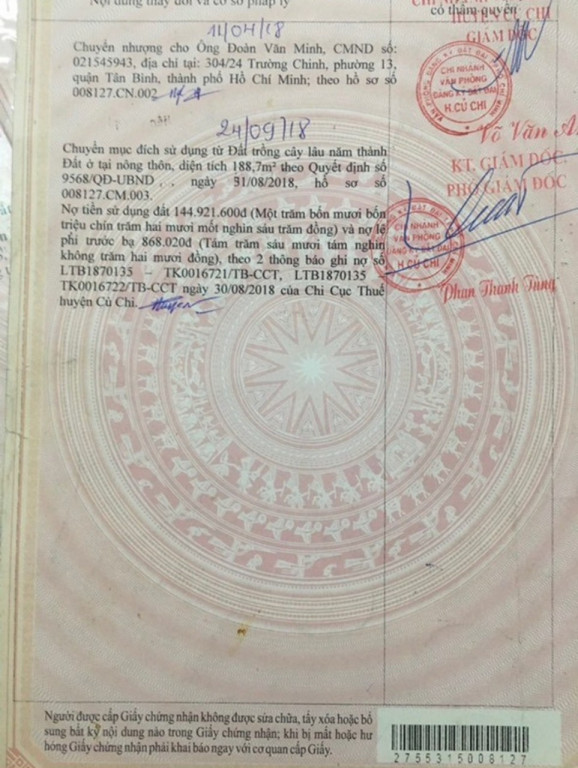 Nội dung thay đổi và cơ sở pháp lý
có thẩm quyền
HUYỆN CỦ CHI
GIÁM ĐỐC
11/04/18
Chuyển nhượng cho Ông Đoàn Văn Minh, CMND số:
021545943, địa chỉ tại: 304/24 Trường Chinh, phường 13,
quận Tân Bình, thành phố Hồ Chí Minh; theo hồ sơ số
008127.CN.002
CHI NHÁNH
VĂN PHÒNG
ĐĂNG KÝ ĐẤT ĐAI
H.CỦ CHI
Võ Văn
24/09/18
Chuyển mục đích sử dụng từ Đất trồng cây lâu năm thành
Đất ở tại nông thôn, diện tích 188,7m² theo Quyết định số
9568/QĐ-UBND , . ngày 31/08/2018, hồ sơ số
008127.CM.003.
KT. GIÁM ĐỐC
PHÓ GIÁM ĐỐC
Nợ tiền sử dụng đất 144.921.600đ (Một trăm bốn mươi bốn
triệu chín trăm hai mươi mốt nghìn sáu trăm đồng) và nợ lệ
phí trước bạ 868.020đ (Tám trăm sáu mươi tám nghìn
không trăm hai mươi đồng), theo 2 thông báo ghi nợ số
LTB1870135 – TK0016721/TB-CCT, LTB1870135 –
TK0016722/TB-CCT ngày 30/08/2018 của Chi Cục Thuế
huyện Củ Chi.
CHI NHÁNH
VĂN PHÒNG
ĐĂNG KÝ ĐẤT ĐAI
H.CỦ CHI
Phan Thanh Tùng
Người được cấp Giấy chứng nhận không được sửa chữa, tẩy xóa hoặc bổ
sung bất kỳ nội dung nào trong Giấy chứng nhận; khi bị mất hoặc hư
hỏng Giấy chứng nhận phải khai báo ngay với cơ quan cấp Giấy.
2755315008127